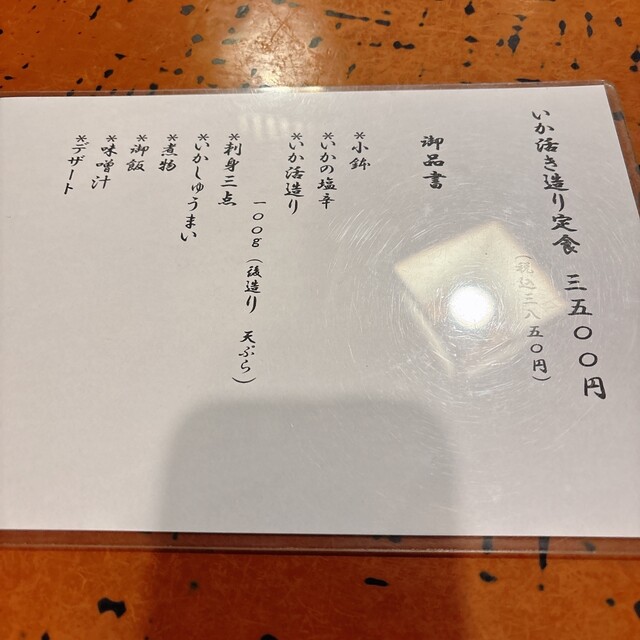 いか活き造り定食 三五〇〇円
(税込三八五〇円)
御品書
*小鉢
*いかの塩辛
*いか活造り
一〇〇g (後造り 天ぷら)
*刺身三点
*いかしゅうまい
*煮物
*御飯
*味噌汁
*デザート